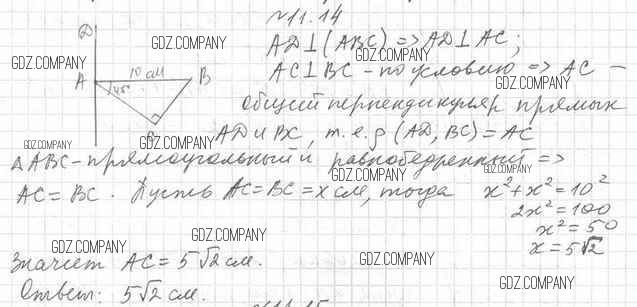 №11.14
AD⊥(ABC) => AD⊥AC;
AC⊥BC - по условию => AC -
общий перпендикуляр прямых
AD и BC, т.е. ρ(AD, BC) = AC
D
A
10 см
B
45°
C
△ABC - прямоугольный и равнобедренный =>
AC = BC. Пусть AC = BC = x см, тогда
x² + x² = 10²
2x² = 100
x² = 50
x = 5√2
Значит AC = 5√2 см.
Ответ: 5√2 см.
№11.15
GDZ.COMPANY
GDZ.COMPANY
GDZ.COMPANY
GDZ.COMPANY
GDZ.COMPANY
GDZ.COMPANY
GDZ.COMPANY
GDZ.COMPANY
GDZ.COMPANY
GDZ.COMPANY
GDZ.COMPANY
GDZ.COMPANY
GDZ.COMPANY